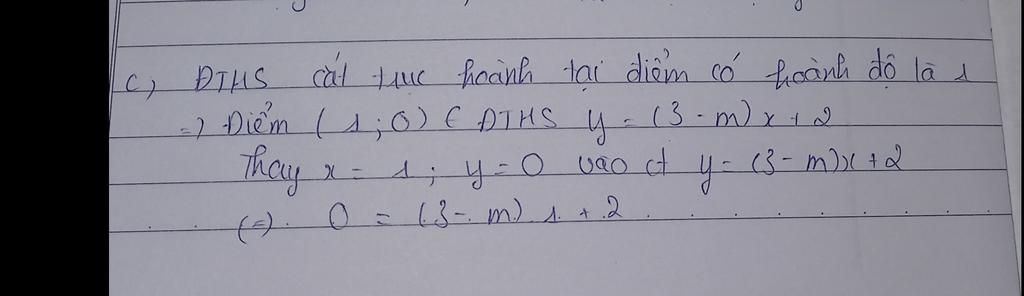 c) ĐTHS cắt trục hoành tại điểm có hoành độ là 1
=) Điểm (1;0) ∈ ĐTHS y = (3 - m) x + 2
Thay x = 1; y = 0 vào ct y = (3 - m)x + 2
(=) 0 = (3 - m) 1 + 2